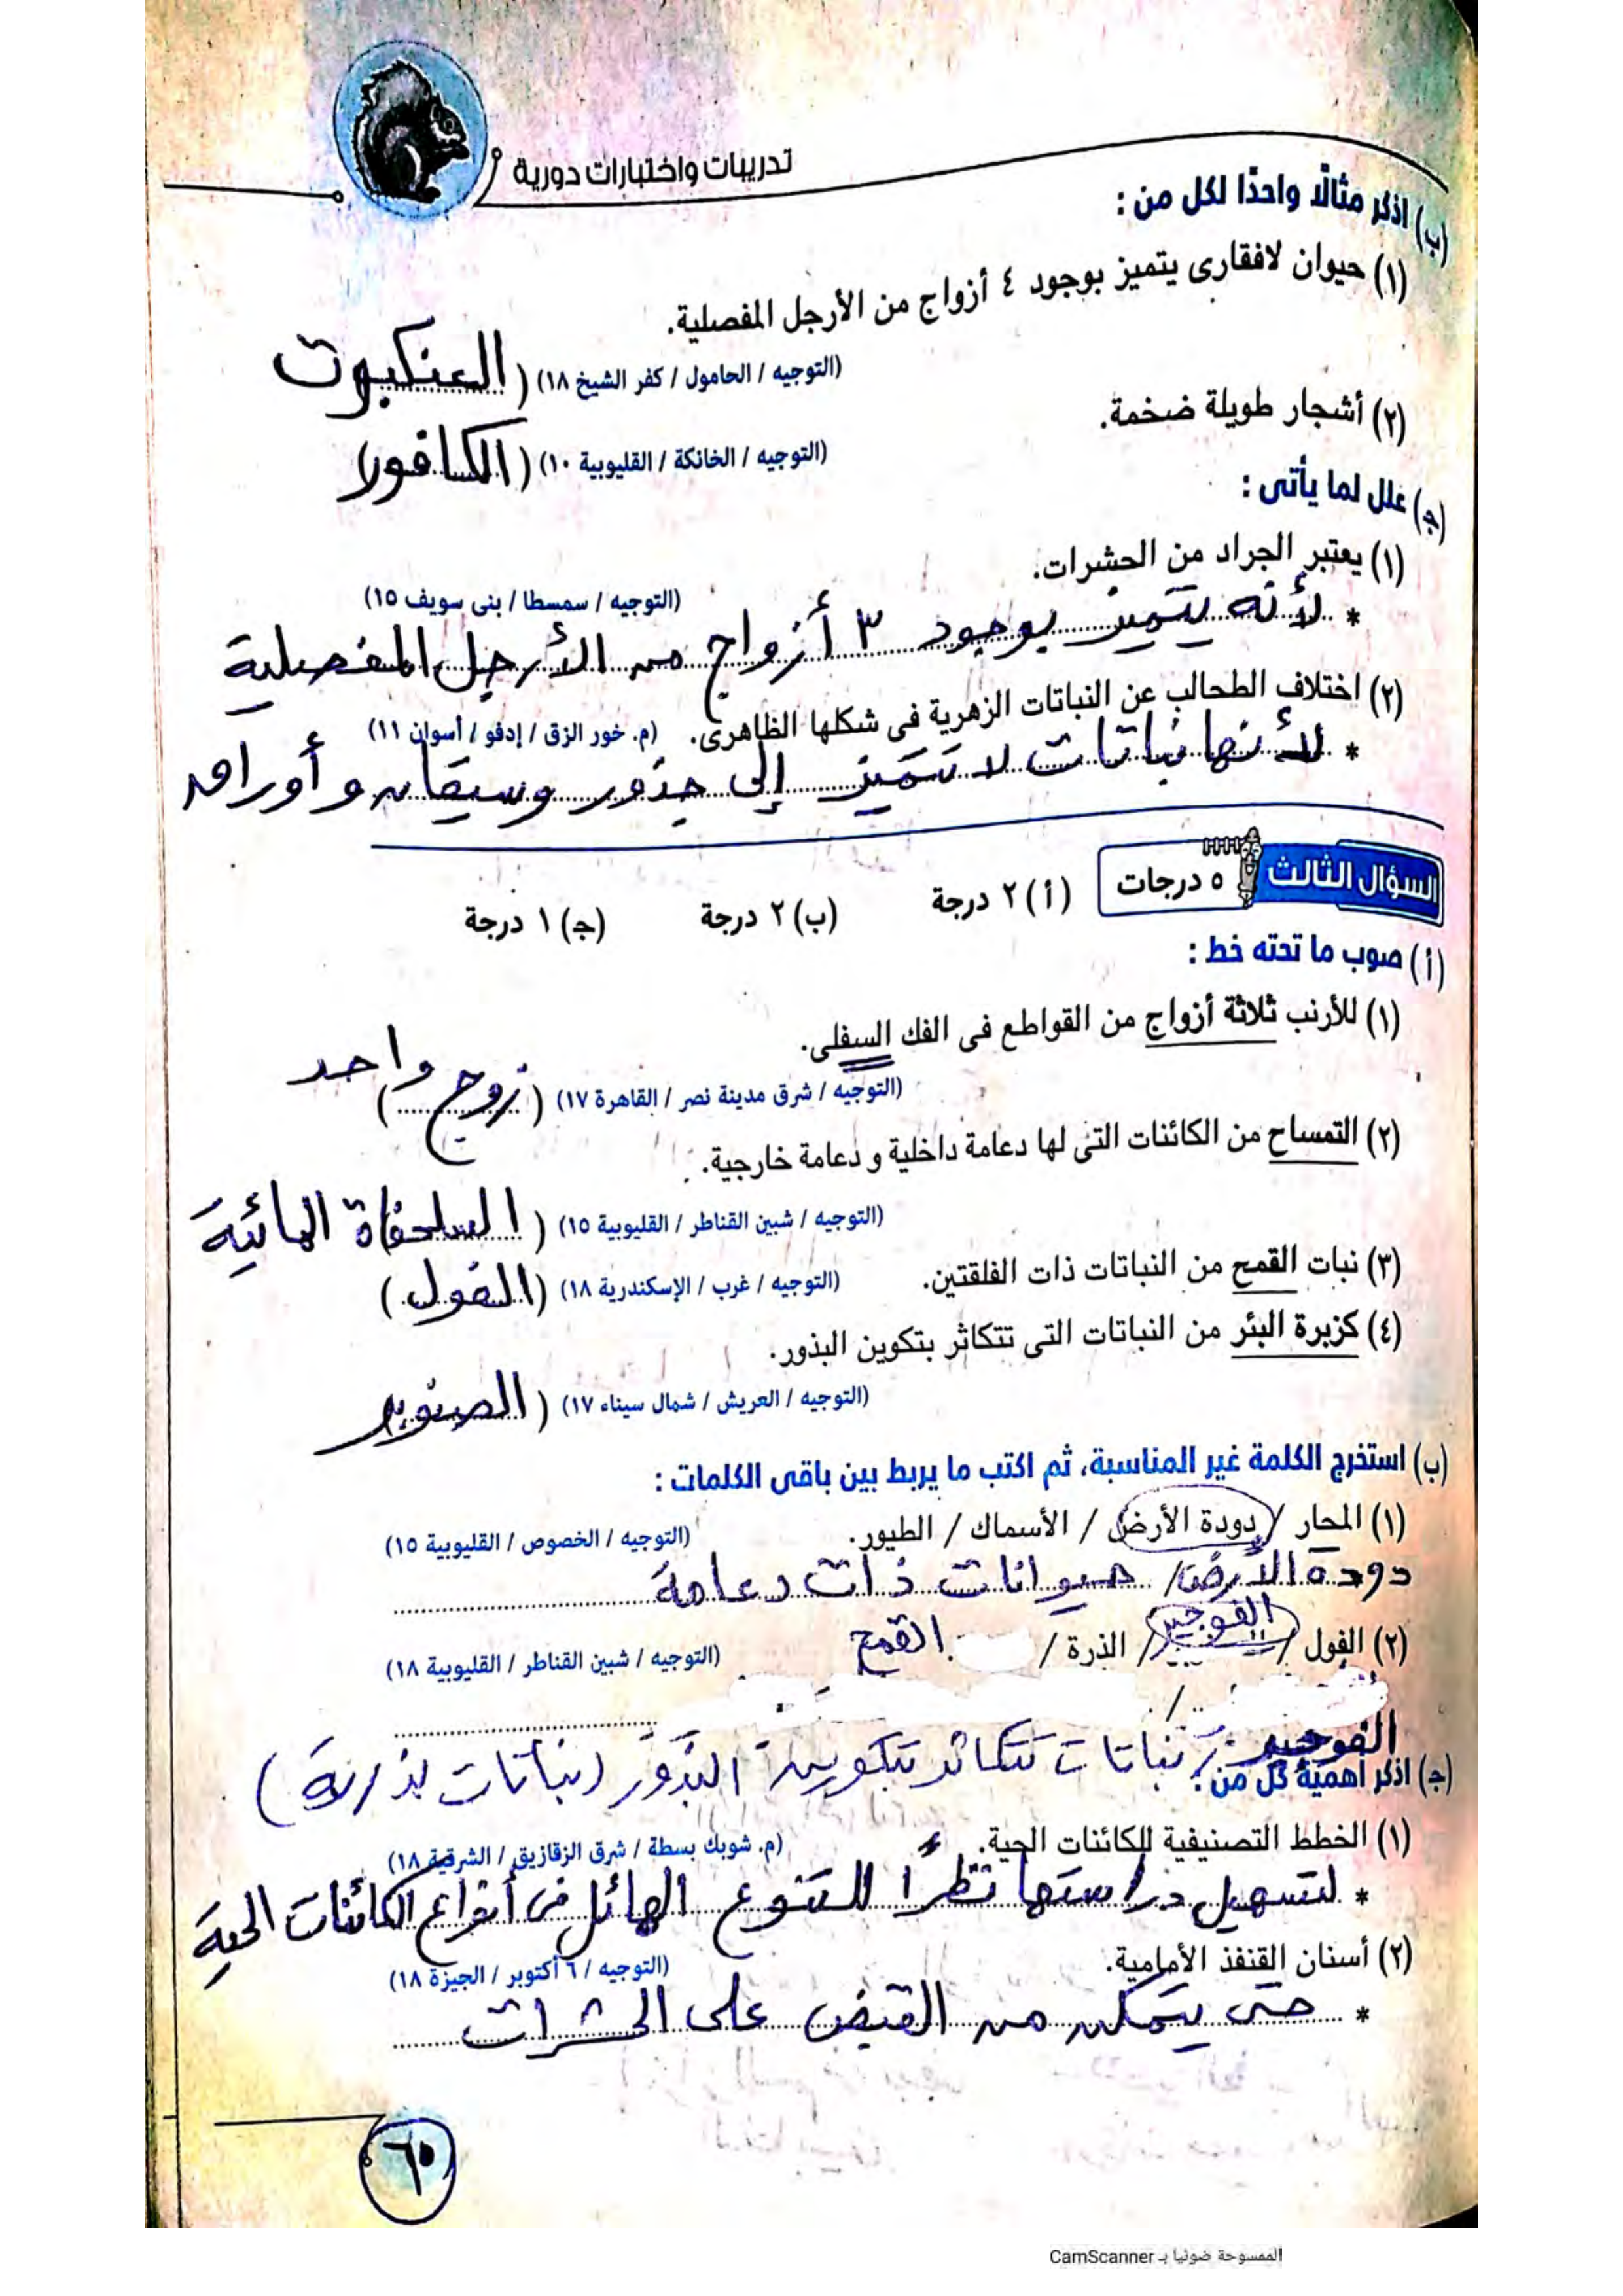 تدريبات واختبارات دورية
(ب) اذكر مثالًا واحدًا لكل من :
(١) حيوان لافقارى يتميز بوجود ٤ أزواج من الأرجل المفصلية.
(التوجيه / الحامول / كفر الشيخ ١٨) (العنكبوت
(٢) أشجار طويلة ضخمة.
(التوجيه / الخانكة / القليوبية ١٠) (الكافور)
(جـ) علل لما يأتى :
(١) يعتبر الجراد من الحشرات.
(التوجيه / سمسطا / بنى سويف ١٥)
* لأنه يتميز بوجود ٣ أزواج من الأرجل المفصلية
(٢) اختلاف الطحالب عن النباتات الزهرية فى شكلها الظاهرى. (م. خور الزق / إدفو / أسوان ١١)
* لأنها نباتات لا تتميز إلى جذور وسيقان وأوراق
السؤال الثالث ٥ درجات (أ) ٢ درجة (ب) ٢ درجة (جـ) ١ درجة
(أ) صوب ما تحته خط :
(١) للأرنب ثلاثة أزواج من القواطع فى الفك السفلى.
(التوجيه / شرق مدينة نصر / القاهرة ١٧) (زوج واحد)
(٢) التمساح من الكائنات التى لها دعامة داخلية و دعامة خارجية.
(التوجيه / شبين القناطر / القليوبية ١٥) (السلحفاة المائية
(٣) نبات القمح من النباتات ذات الفلقتين. (التوجيه / غرب / الإسكندرية ١٨) (الفول)
(٤) كزبرة البئر من النباتات التى تتكاثر بتكوين البذور.
(التوجيه / العريش / شمال سيناء ١٧) (الصنوبر
(ب) استخرج الكلمة غير المناسبة، ثم اكتب ما يربط بين باقى الكلمات :
(١) المحار / دودة الأرض / الأسماك / الطيور. (التوجيه / الخصوص / القليوبية ١٥)
دودة الأرض / حيوانات ذات دعامة
(٢) الفول / الفوجير / الذرة / القمح. (التوجيه / شبين القناطر / القليوبية ١٨)
الفوجير / نباتات تتكاثر بتكوين البذور (نباتات بذرية)
(جـ) اذكر أهمية كل من :
(١) الخطط التصنيفية للكائنات الحية. (م. شوبك بسطة / شرق الزقازيق / الشرقية ١٨)
* لتسهيل دراستها نظرًا للتنوع الهائل فى أنواع الكائنات الحية
(٢) أسنان القنفذ الأمامية. (التوجيه / ٦ أكتوبر / الجيزة ١٨)
* حتى يتمكن من القبض على الحشرات
٦٥
الممسوحة ضوئيا بـ CamScanner